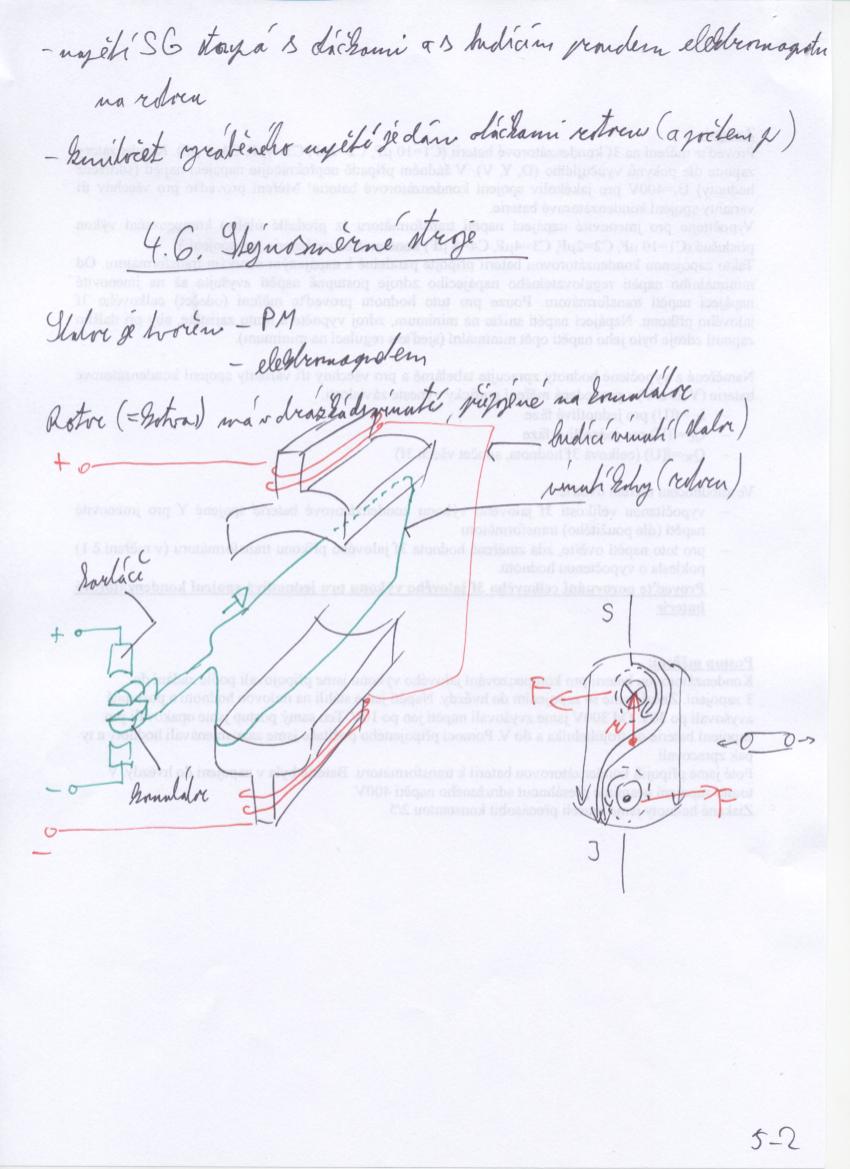 - napětí SG stoupá s otáčkami a s budícím proudem elektromagnetu
na rotoru
- kmitočet vyráběného napětí je dán otáčkami rotoru (a počtem p)
4.6. Stejnosměrné stroje
Stator je tvořen - PM
- elektromagnetem
Rotor (=kotva) má v drážkách vinutí, připojené na komutátor
budící vinutí (stator)
+
vinutí kotvy (rotoru)
kartáče
S
+
F
r
-
komutátor
F
-
J
5-2